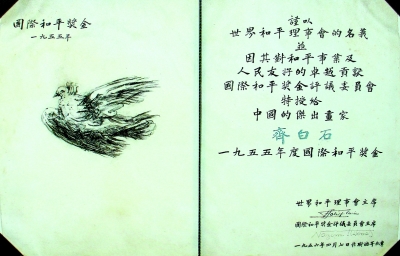 國際和平獎金
一九五五年
謹以
世界和平理事會的名義
並
因其對和平事業及
人民友好的卓越貢獻
國際和平獎金評議委員會
特授給
中國的傑出畫家
齊白石
一九五五年度國際和平獎金
世界和平理事會主席
國際和平獎金評議委員會主席